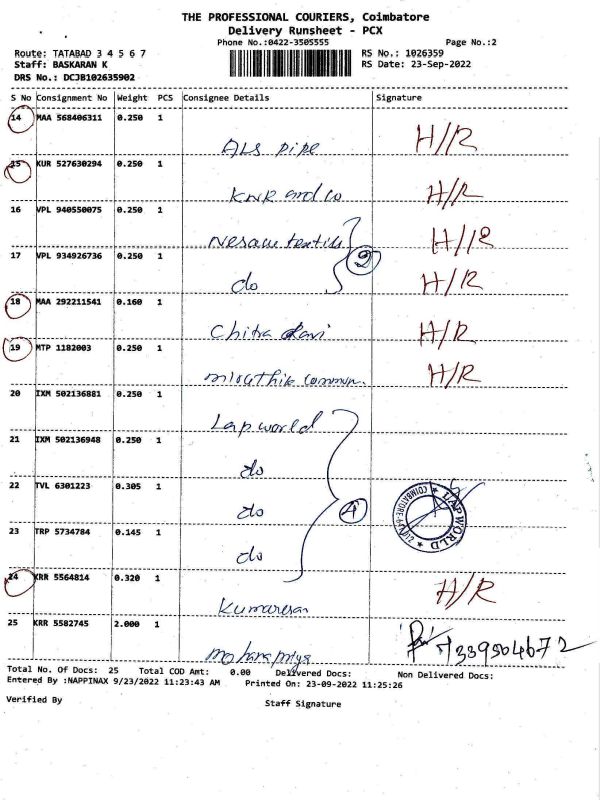 THE PROFESSIONAL COURIERS, Coimbatore
Delivery Runsheet - PCX
Phone No.:0422-3505555 Page No.:2
Route: TATABAD 3 4 5 6 7 RS No.: 1026359
Staff: BASKARAN K RS Date: 23-Sep-2022
DRS No.: DCJB102635902
S No Consignment No Weight PCS Consignee Details Signature
14 MAA 568406311 0.250 1
ALS pipe H/R
15 KUR 527630294 0.250 1
KNR and co H/R
16 VPL 940550075 0.250 1
H/R
17 VPL 934926736 0.250 1 2
do H/R
18 MAA 292211541 0.160 1
Chitra H/R
19 MTP 1182003 0.250 1
H/R
20 IXM 502136881 0.250 1
Lap world
21 IXM 502136948 0.250 1
do
22 TVL 6301223 0.305 1
do 4 LAP WORLD
23 TRP 5734784 0.145 1
do
24 KRR 5564814 0.320 1
Kumaresan H/R
25 KRR 5582745 2.000 1
Total No. Of Docs: 25 Total COD Amt: 0.00 Delivered Docs: Non Delivered Docs:
Entered By :NAPPINAX 9/23/2022 11:23:43 AM Printed On: 23-09-2022 11:25:26
Verified By Staff Signature